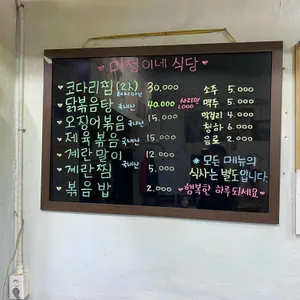 이정이네 식당
코다리찜 (2人) 30,000
닭볶음탕 국내산 40,000 사리면 1,000
오징어볶음 국내산 15,000
제육볶음 국내산 15,000
계란말이 국내산 12,000
계란찜 국내산 5,000
볶음밥 2,000
소주 5,000
맥주 5,000
막걸리 4,000
청하 6,000
음료 2,000
* 모든 메뉴의
식사는 별도입니다.
♥행복한 하루되세요♥